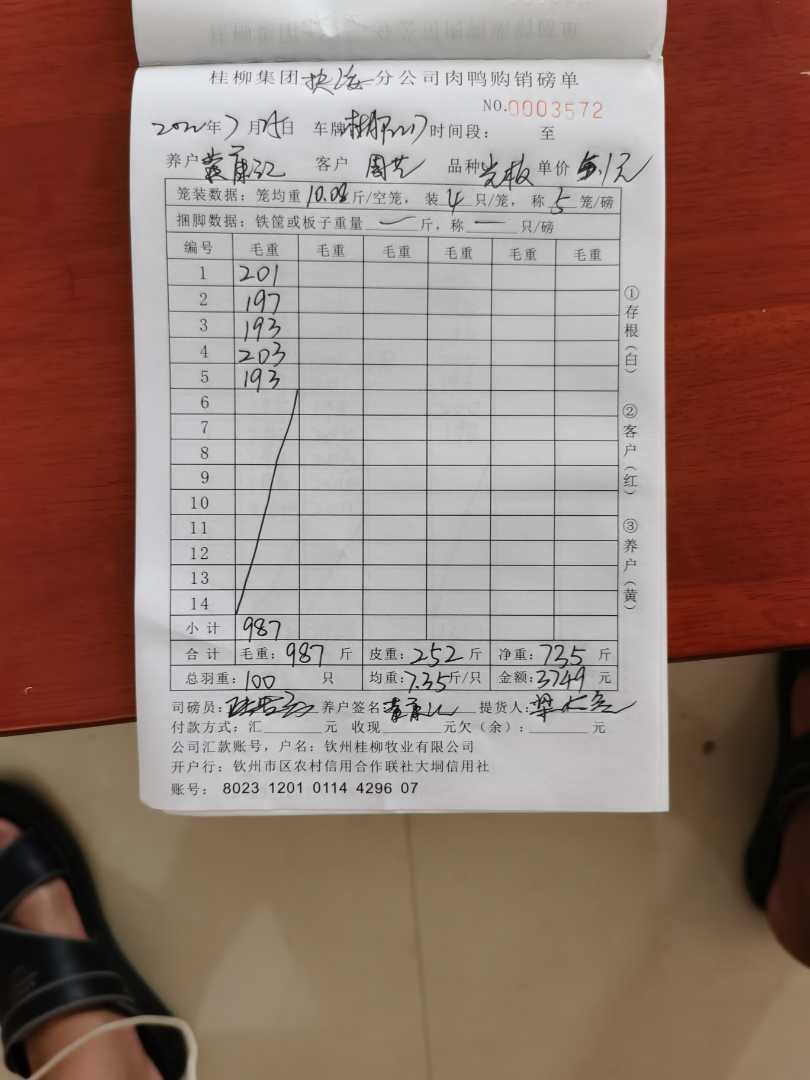 桂柳集团 分公司肉鸭购销磅单
NO.0003572
年7月25日 车牌 时间段： 至
养户 客户 品种 单价
笼装数据：笼均重10.08斤/空笼，装4只/笼，称5笼/磅
捆脚数据：铁筐或板子重量 一 斤，称 一 只/磅
编号 毛重 毛重 毛重 毛重 毛重 毛重
1 201
2 197
3 193
4 203
5 193
6
7
8
9
10
11
12
13
14
小计 987
合计 毛重：987斤 皮重：252斤 净重：735斤
总羽重：100只 均重：7.35斤/只 金额：3749元
司磅员： 养户签名： 提货人：
付款方式：汇 元 收现 元欠（余）： 元
公司汇款账号，户名：钦州桂柳牧业有限公司
开户行：钦州市区农村信用合作联社大垌信用社
账号： 8023 1201 0114 4296 07
①存根（白）
②客户（红）
③养户（黄）